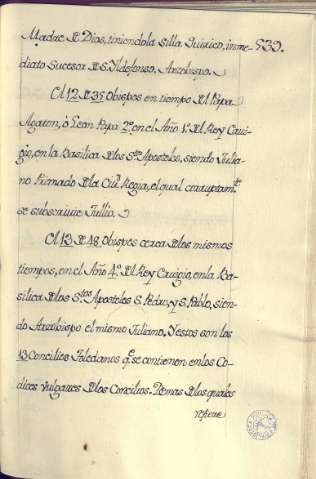 Madre de Dios, tiniendo la silla Quirico, inme= 530.
diato Sucesor de S. Ildefonso, Arzobispo.
El 12 de 35 Obispos en tiempo del Papa
Agaton, ò Leon Papa 2º. en el Año 1º. del Rey Ervi-
gio, en la Basilica de los Stos. Apostoles, siendo Julia-
no Primado de la Ciud. Regia, el qual corruptamte.
se subscrivie Tullio.
El 13 de 48 Obispos cerca de los mismos
tiempos, en el Año 4º. del Rey Ervigio, en la Ba-
silica de los Stos. Apostoles S. Pedro, y S. Pablo, sien-
do Arzobispo el mismo Juliano. Y estos son los
13 Concilios Toledanos qe. se contienen en los Co-
dices vulgares de los Concilios. Demas de los quales
refiere